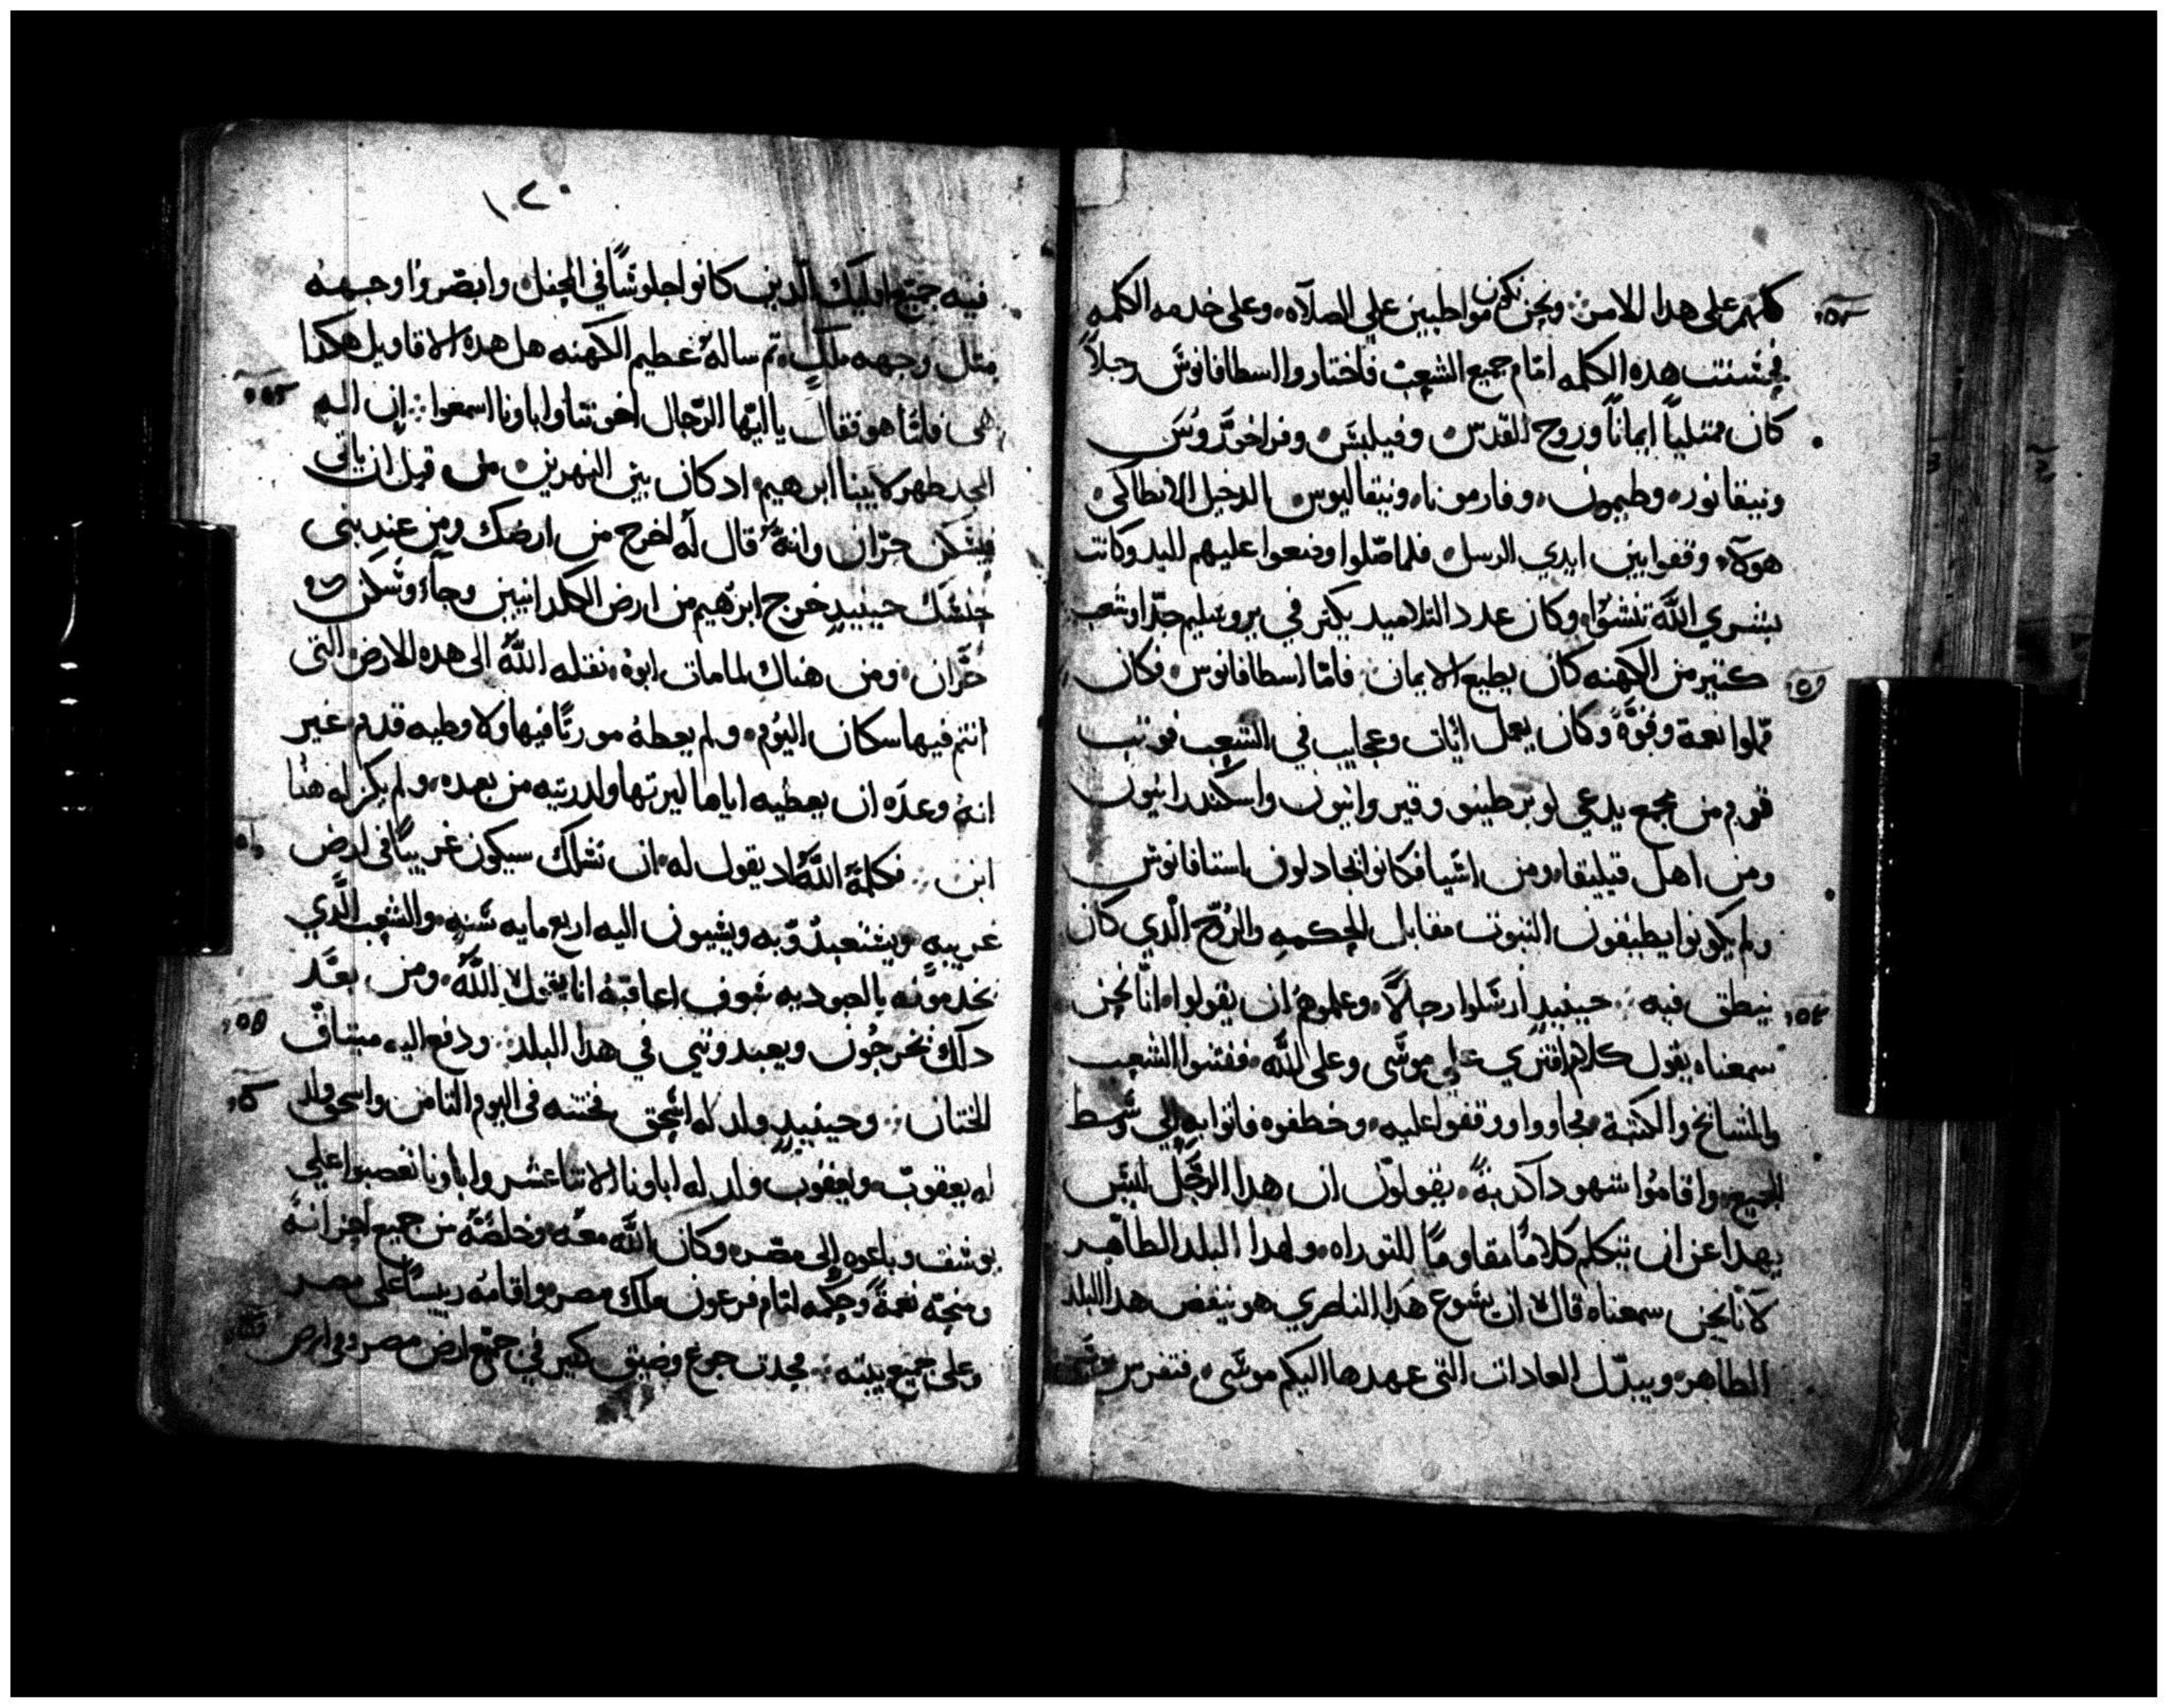 كلهم على هدا الامر ونحن نكون مواطبين علي الصلاه وعلى خدمه الكلمه
فحسنت هده الكلمه امام جميع الشعب فاختاروا السطافانوس رجلاً
كان ممتلياً ايماناً وروح القدس وفيلبس وفراخوروس
ونيقانوره وطيمون وفارمونا ونيقاليوس الدخيل الانطاكي
هولاء وقفوا بين ايدي الرسل فلما صلوا وضعوا عليهم اليد وكانت
بشري الله تنشوا وكان عدد التلاميد يكتر في يروشليم جدا وشعب
كتير من الكهنه كان يطيع الايمان فامّا اسطافانوس فكان
مملوا نعمة وقوّة وكان يعمل ايات وعجايب في الشعب فوتب
قوم من مجمع يدعي لوبرطينو وقيروانيون واسكندرانيون
ومن اهل قيليقيا ومن اسيا فكانوا يجادلون استافانوس
ولم يكونوا يطيقون التبوت مقابل الحكمه والروح الّدي كان
ينطق فيه حينيدٍ ارسلوا رجالاً وعلموهم ان يقولوا انّا نحن
سمعناه يقول كلام افتري علي موسى وعلى الله ففتنوا الشعب
والمشايخ والكتبة فجاووا ووقفوا عليه وخطفوه فاتوا به الي وسط
الجميع واقاموا شهود اكدبة يقولون ان هدا الرجل ليس
يهدا عن ان يتكلم كلاماً مقاوماً للتوراه ولهدا البلد الطاهر
لانّا نحن سمعناه قال ان يشوع هدا الناصري هو ينقض هدا البلد
الطاهره ويبدّل العادات التى عهدها اليكم موسى فتفرس
١٢٠
فيه جميع اوليك الّدين كانوا جلوساً في المحفل وابصروا وجهه
متل وجهه ملك تم ساله عطيم الكهنه هل هده الاقاويل هكدا
هى فامّا هو فقال يا ايّها الرّجال اخوتنا واباونا اسمعوا ان اله
المجد طهر لابينا ابرهيم اد كان بين النهرين من قبل ان ياتى
فيسكن حرّان وانهُ قال له اخرج من ارضك ومن عند بنى
جنسك حينيدٍ خرج ابرهيم من ارض الكلدانيين وجاء وسكن
حرّان ومن هناك لما مات ابوه نقله الله الى هده الارض التى
انتم فيها سكان اليوم ولم يعطهُ مورتاً فيها ولا وطيه قدم غير
انهُ وعدَه ان يعطيه اياها ليرتها ولدريته من بعده ولم يكن له هنا
ابن فكلمهُ الله اد يقول له ان نسلك سيكون غريباً فى ارض
غريبه ويستعبدوّبه ويسيون اليه اربع مايه سنه والشعب الّدي
يخدمونه بالعبوديه سوف اعاقبهُ انا يقول الله ومن بعد
دلك يخرجون ويعبدونني في هدا البلد ودفع اليه ميتاق
الختان وحينيدٍ ولد له اسحق فختنه فى اليوم التامن واسحق ولد
له يعقوب ويعقوب ولد له اباونا الاتنا عشر واباونا تعصبوا علي
يوسف وباعوه الى مصر وكان الله معه وخلصَه من جميع احزانه
ومنحه نعمةً وحكمه امام فرعون ملك مصر واقامه رييساً على مصر
وعلى جميع بيته فحدت جوع وضيق كبير في جميع ارض مصر وفى ارض